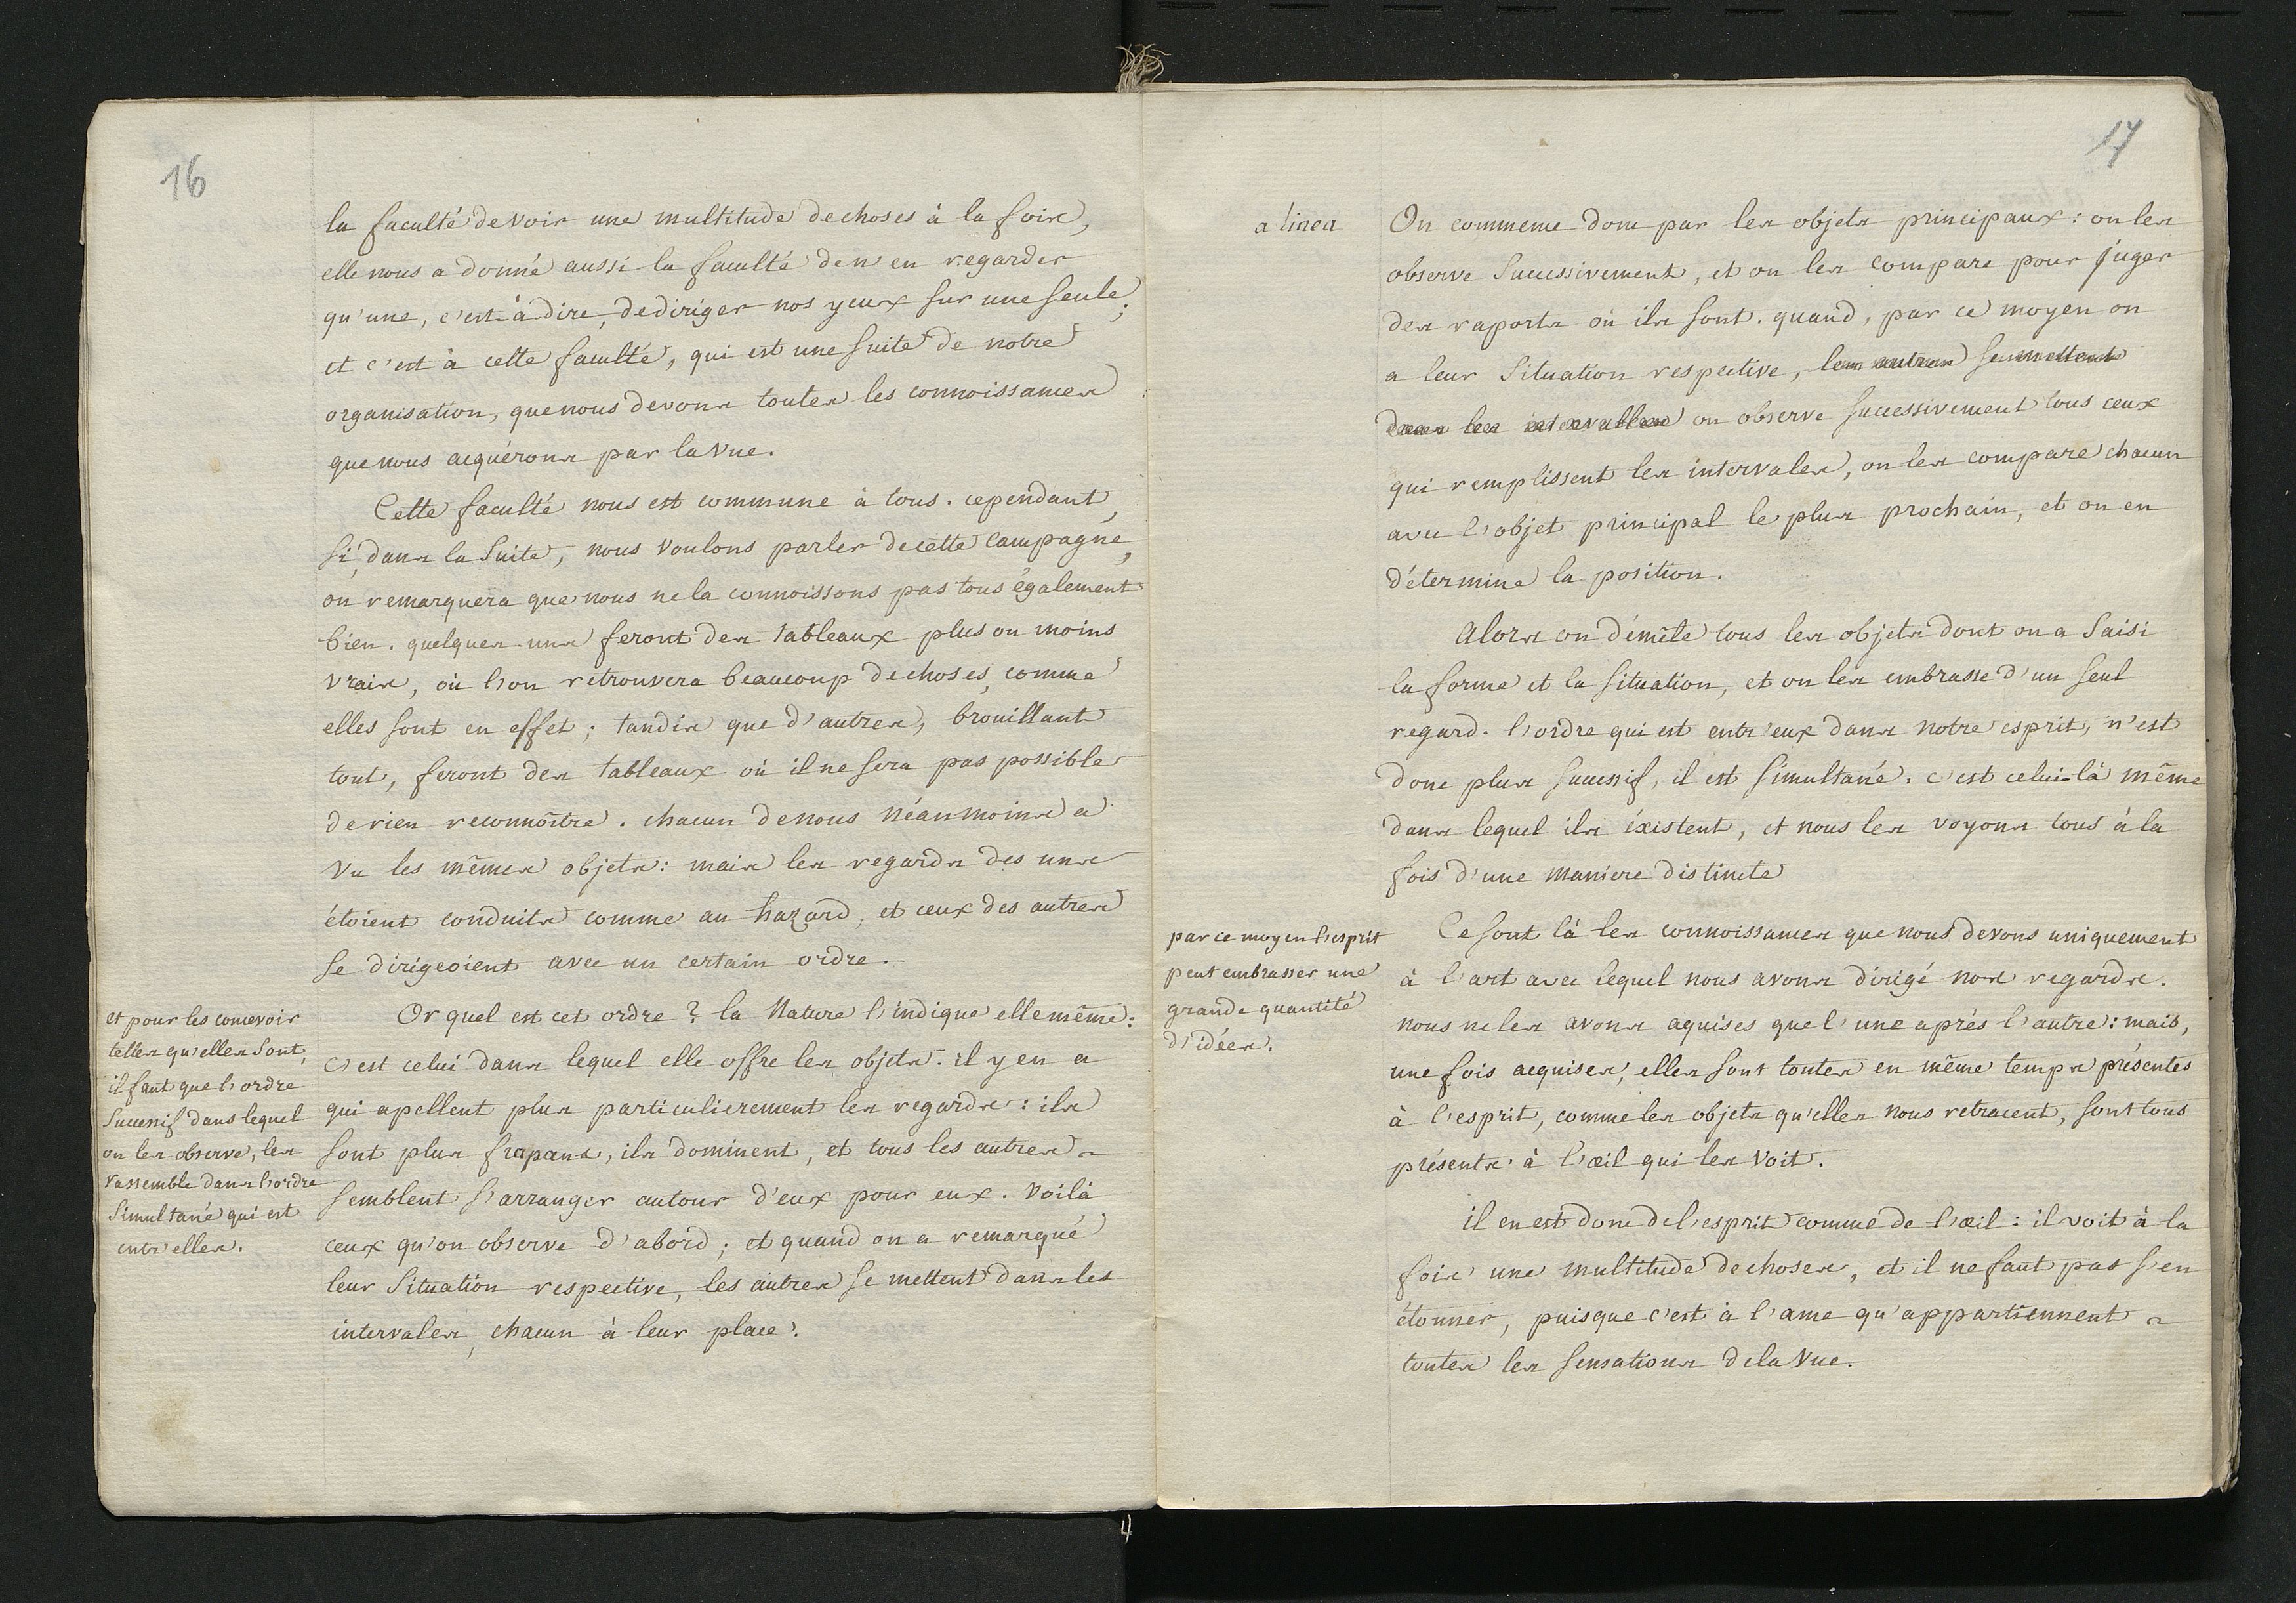 16
la faculté de voir une multitude de choses à la fois,
elle nous a donné aussi la faculté den en regarder
qu'une, c'est à dire, de diriger nos yeux sur une seule;
et c'est à cette faculté, qui est une suite de notre
organisation, que nous devons toutes les connoissances
que nous acquérons par la vue.
Cette faculté nous est commune à tous. cependant,
si, dans la suite, nous voulons parler de cette campagne,
on remarquera que nous ne la connoissons pas tous également
bien. quelques uns feront des tableaux plus ou moins
vrais, où l'on retrouvera beaucoup de choses, comme
elles sont en effet; tandis que d'autres, brouillant
tout, feront des tableaux où il ne sera pas possible
de rien reconnoître. chacun de nous néanmoins a
vu les mêmes objets: mais les regards des uns
étoient conduits comme au hazard, et ceux des autres
se dirigeoient avec un certain ordre.
Or quel est cet ordre? la Nature l'indique elle même:
c'est celui dans lequel elle offre les objets. il y en a
qui apellent plus particulierement les regards: ils
sont plus frapans, ils dominent, et tous les autres
semblent s'arranger autour d'eux pour eux. voilà
ceux qu'on observe d'abord; et quand on a remarqué
leur situation respective, les autres se mettent dans les
intervales, chacun à leur place.
et pour les concevoir
telles qu'elles sont,
il faut que l'ordre
successif dans lequel
on les observe, les
rassemble dans l'ordre
simultané qui est
entr'elles.
17
a linea
On commence donc par les objets principaux: on les
observe successivement, et on les compare pour juger
des raports où ils sont. quand, par ce moyen on
a leur situation respective, les autres se mettent
dans les intervalles on observe successivement tous ceux
qui remplissent les intervales, on les compare chacun
avec l'objet principal le plus prochain, et on en
détermine la position.
Alors on démêle tous les objets dont on a saisi
la forme et la situation, et on les embrasse d'un seul
regard. l'ordre qui est entr'eux dans notre esprit, n'est
donc plus successif, il est simultané. c'est celui-là même
dans lequel ils éxistent, et nous les voyons tous à la
fois d'une maniere distincte
Ce sont là les connoissances que nous devons uniquement
à l'art avec lequel nous avons dirigé nos regards.
nous ne les avons aquises que l'une après l'autre: mais,
une fois acquises, elles sont toutes en même temps présentes
à l'esprit, comme les objets qu'elles nous retracent, sont tous
présents à l'œil qui les voit.
il en est donc de l'esprit comme de l'œil: il voit à la
fois une multitude de choses, et il ne faut pas s'en
étonner, puisque c'est à l'ame qu'appartiennent
toutes les sensations de la vue.
par ce moyen l'esprit
peut embrasser une
grande quantité
d'idées.
4